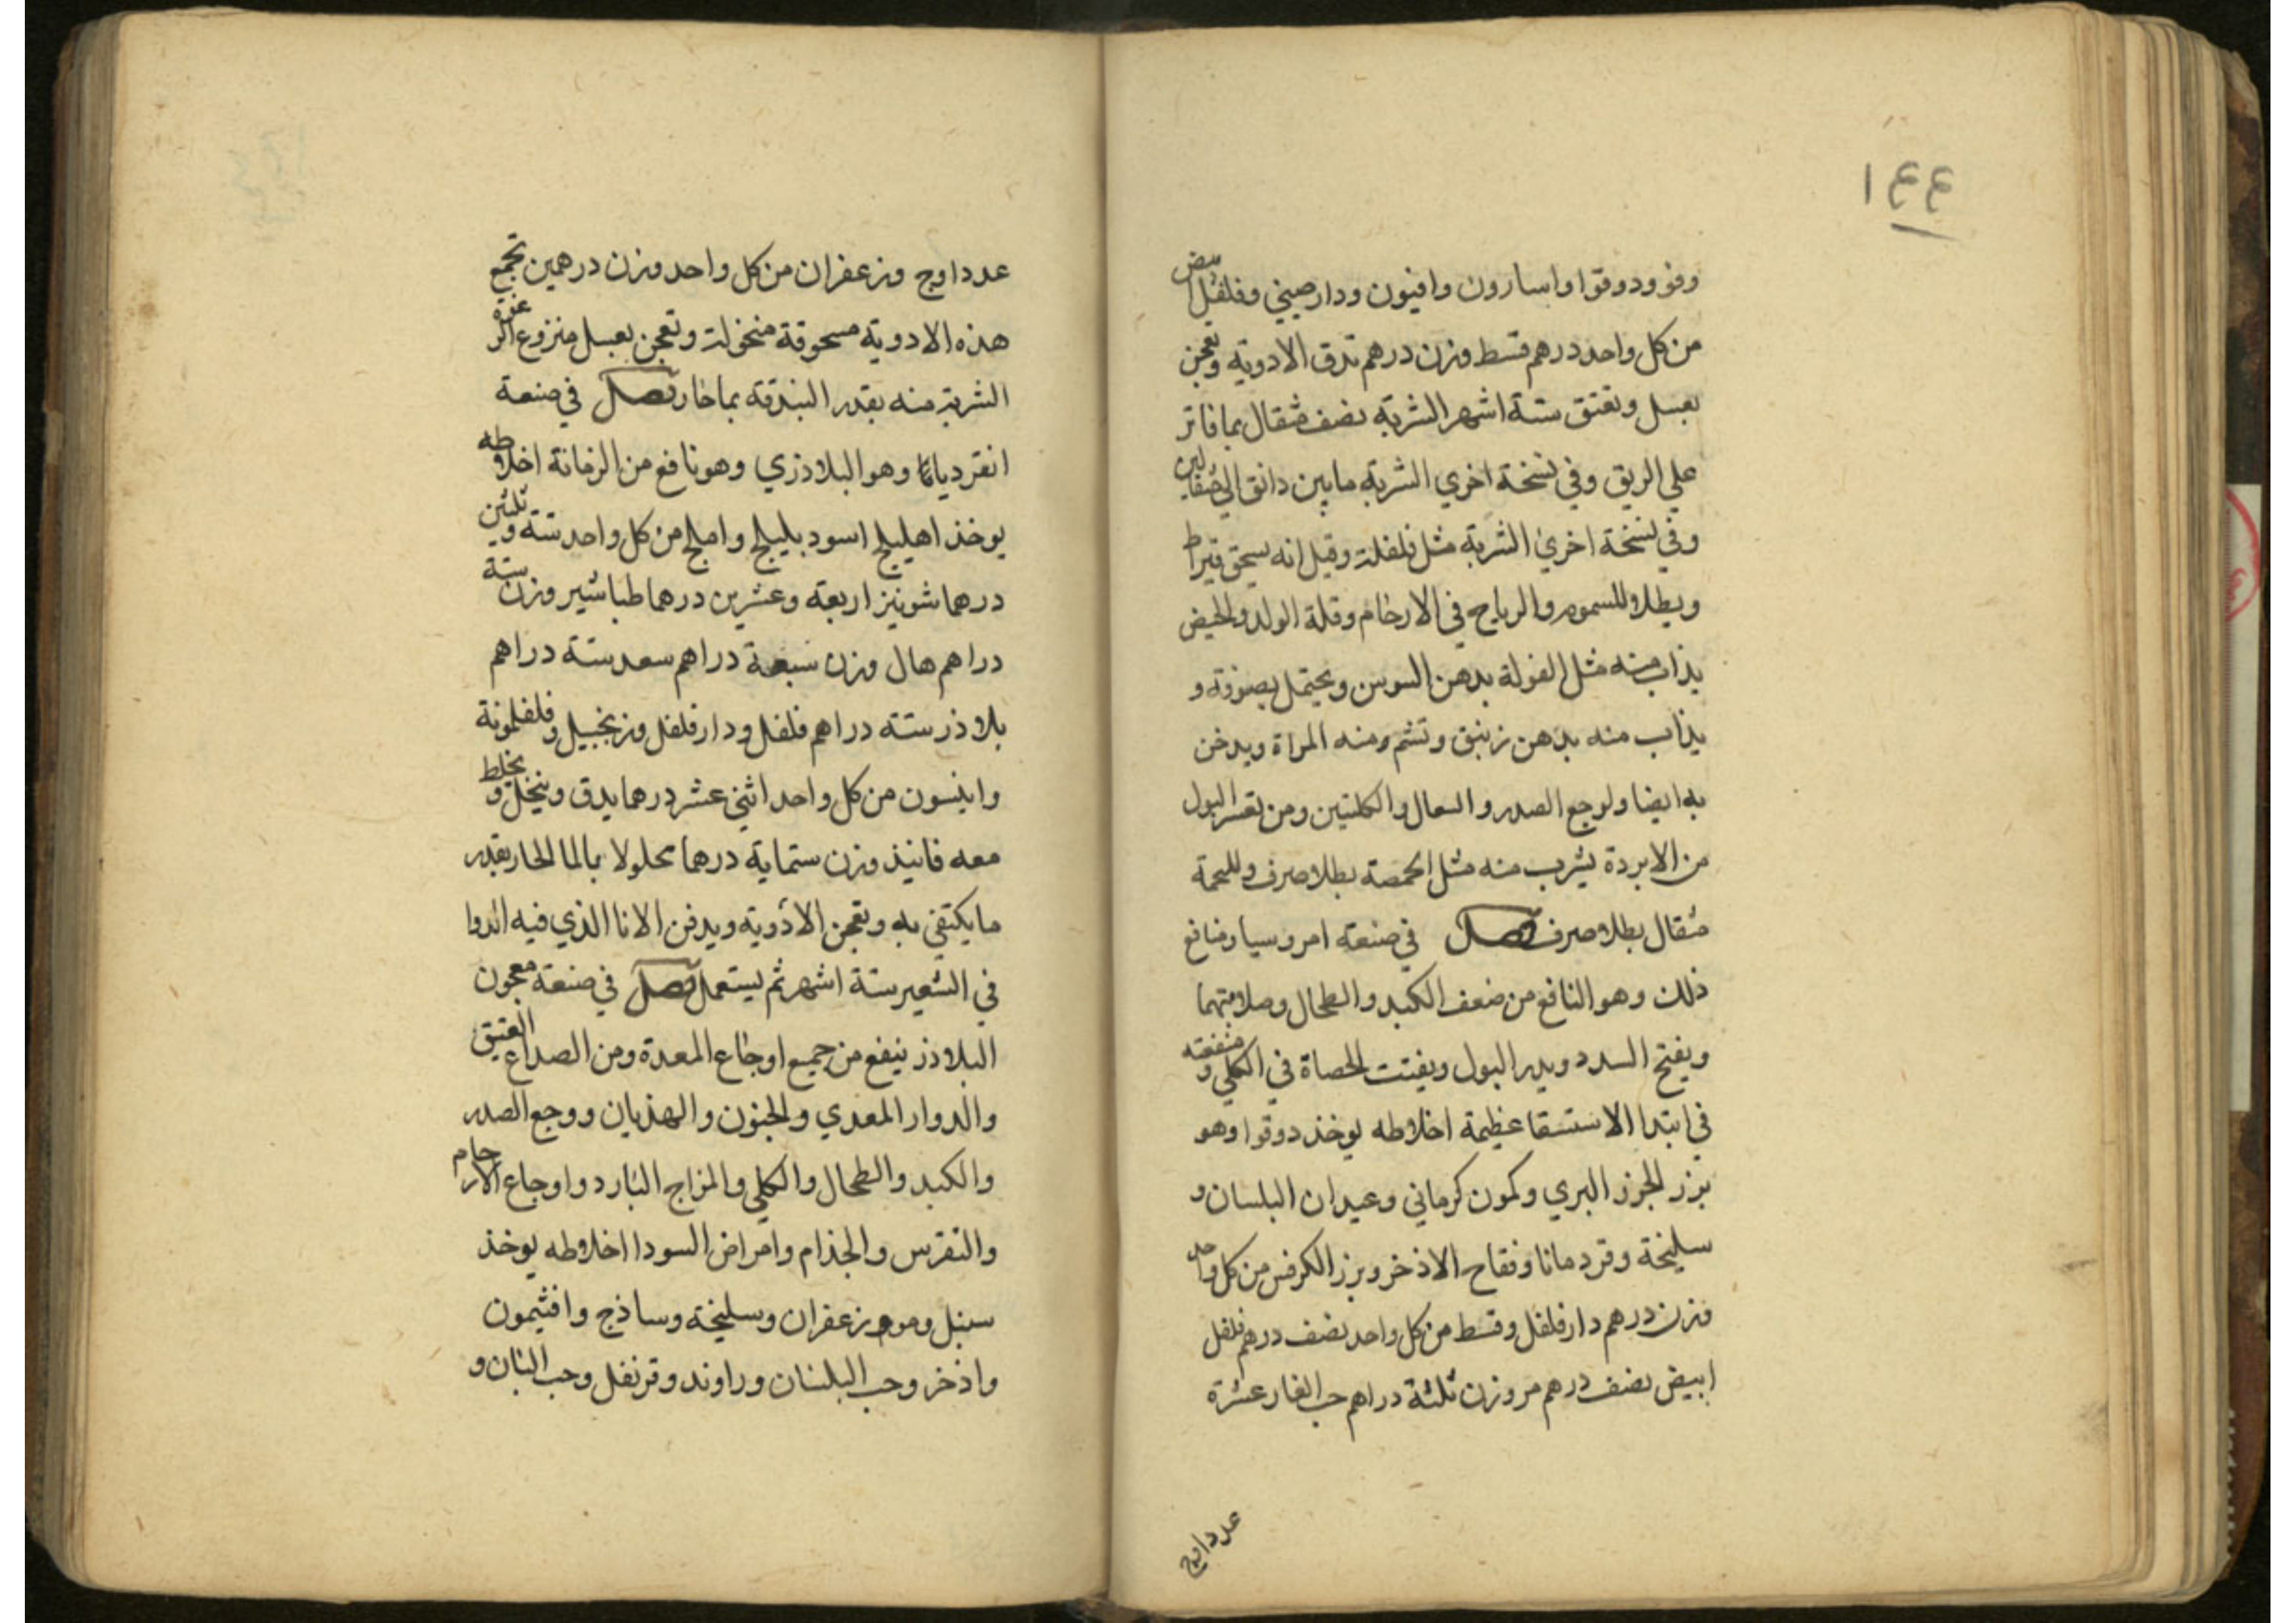 ١٤٤
وفو ودوقوا واسارون وافيون ودارصيني وفلفل ابيض
من كل واحد درهم قسط وزن درهم تدق الادوية وتعجن
بعسل وتعتق ستة اشهر الشربة نصف مثقال بما فاتر
علي الريق وفي نسخة اخري الشربة ما بين دانق الي مثقالين
وفي نسخة اخري الشربة مثل فلفلة وقيل انه يسحق قيراط
ويطلا للسموم والرياح في الارحام وقلة الولد والحيض
يذاب منه مثل الفولة بدهن السوسن ويحتمل بصوفة و
يذاب منه بدهن زنبق وتشم منه المراة ويدخن
به ايضا ولوجع الصدر والسعال والكليتين ومن تعسر البول
من الابردة يشرب منه مثل الحمصة بطلا صرف وللحمة
مثقال بطلا صرف فصل في صنعة امروسيا ومنافع
ذلك وهو النافع من ضعف الكبد والطحال وصلابتهما
ويفتح السدد ويدر البول ويفتت الحصاة في الكلي ومنفعته
في ابتدا الاستسقا عظيمة اخلاطه يوخذ دوقوا وهو
بزر الجزر البري وكمون كرماني وعيدان البلسان و
سليخة وقردمانا وفقاح الاذخر وبزر الكرفس من كل واحد
وزن درهم دارفلفل وقسط من كل واحد نصف درهم فلفل
ابيض نصف درهم مر وزن ثلثة دراهم حب الغار عشرة
عدداوج
عدداوج وزعفران من كل واحد وزن درهمين تجمع
هذه الادوية مسحوقة منخولة وتعجن بعسل منزوع الرغوة
الشربة منه بقدر البندقة بما حار فصل في صنعة
انقرديانا وهو البلادزي وهو نافع من الزمانة اخلاطه
يوخذ اهليلج اسود بليلج واملج من كل واحد ستة وثلثين
درهما شونيز اربعة وعشرين درهما طباشير وزن ستة
دراهم هال وزن سبعة دراهم سعد ستة دراهم
بلاذر ستة دراهم فلفل ودارفلفل وزنجبيل وفلفلمونة
وانيسون من كل واحد اثني عشر درهما يدق وينخل ويخلط
معه فانيذ وزن ستماية درهما محلولا بالما الحار بقدر
ما يكتفي به وتعجن الادوية ويدفن الانا الذي فيه الدوا
في الشعير ستة اشهر ثم يستعمل فصل في صنعة معجون
البلاذر ينفع من جميع اوجاع المعدة ومن الصداع العتيق
والدوار المعدي والجنون والهذيان ووجع الصدر
والكبد والطحال والكلي والمزاج البارد واوجاع الارحام
والنقرس والجذام وامراض السودا اخلاطه يوخذ
سنبل ومر وزعفران وسليخة وساذج وافثيمون
واذخر وحب البلسان وراوند وقرنفل وحب البان و